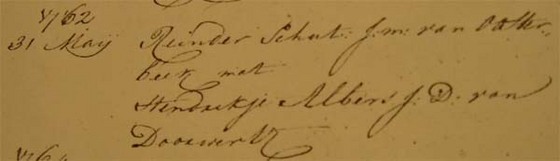 1762
31 Maij Reinder Schut. j:m: van Ooster-
beek met
Hendrikje Albers J: D: van
Doorwerth
176